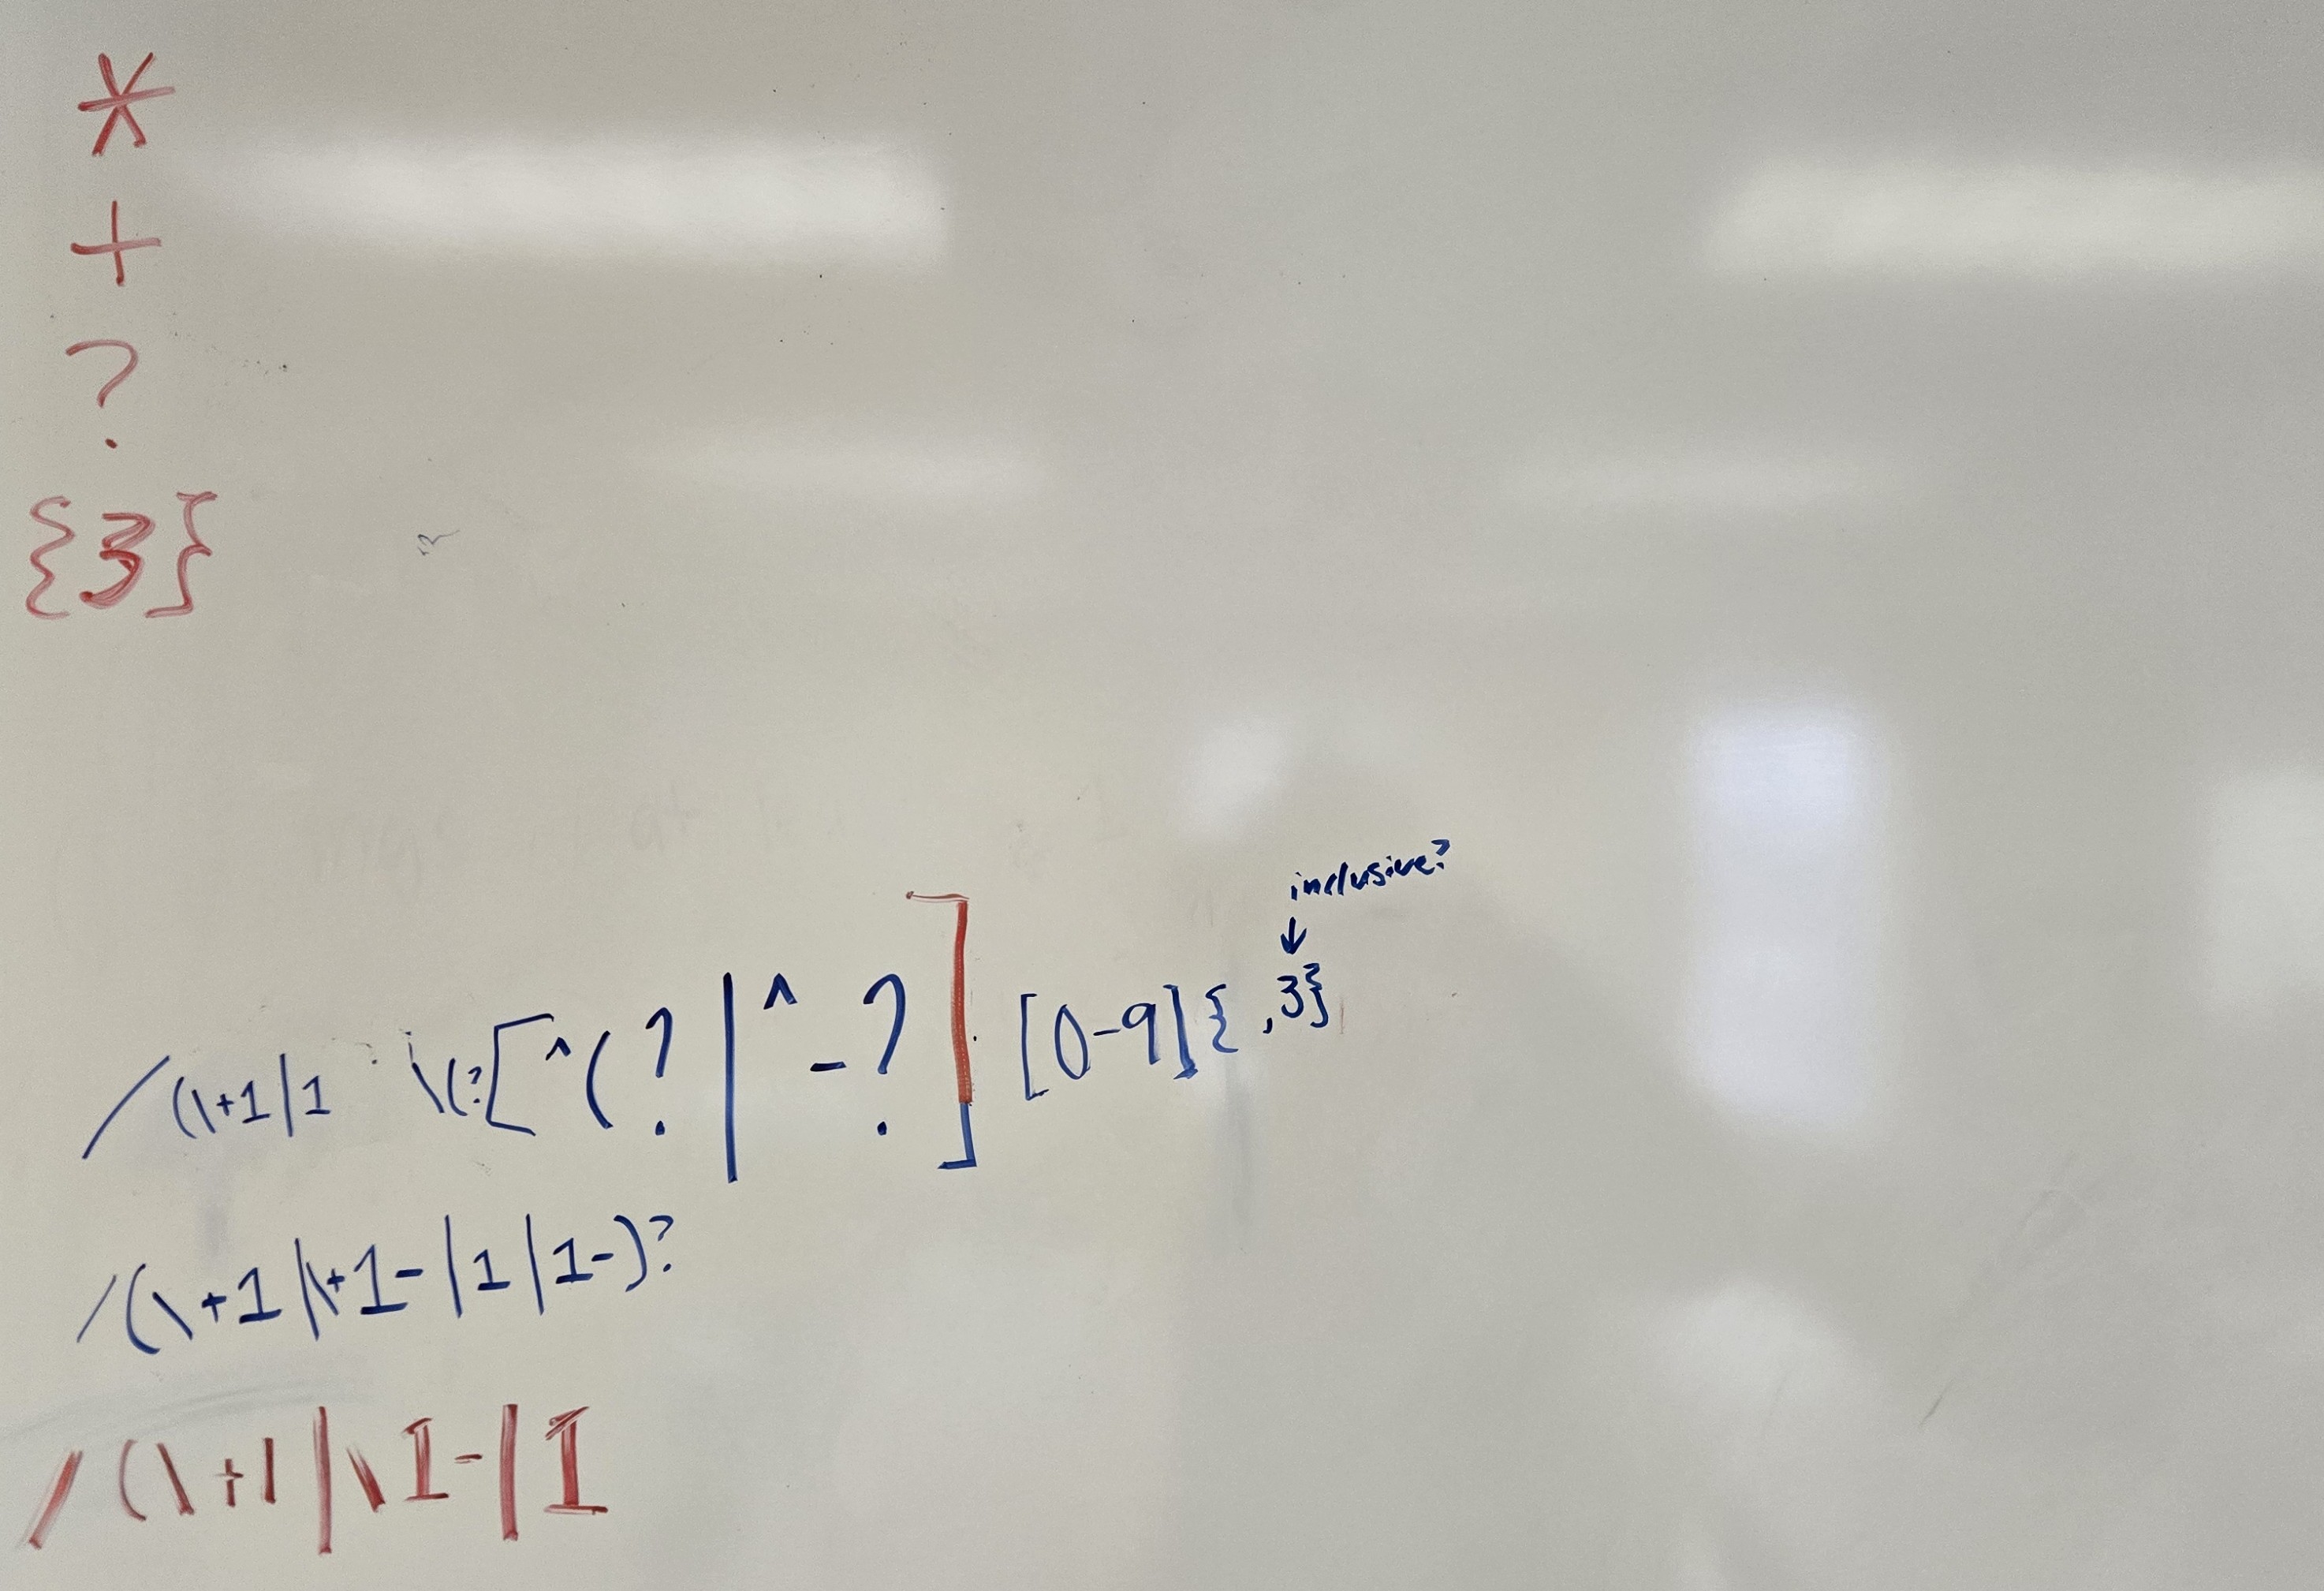 *
+
?
{3}
inclusive?
↓
/(\+1|1 \(?[^(?|^-?] [0-9]{,3}
/(\+1|\+1-|1|1-)?
/(\+1|\1-|1